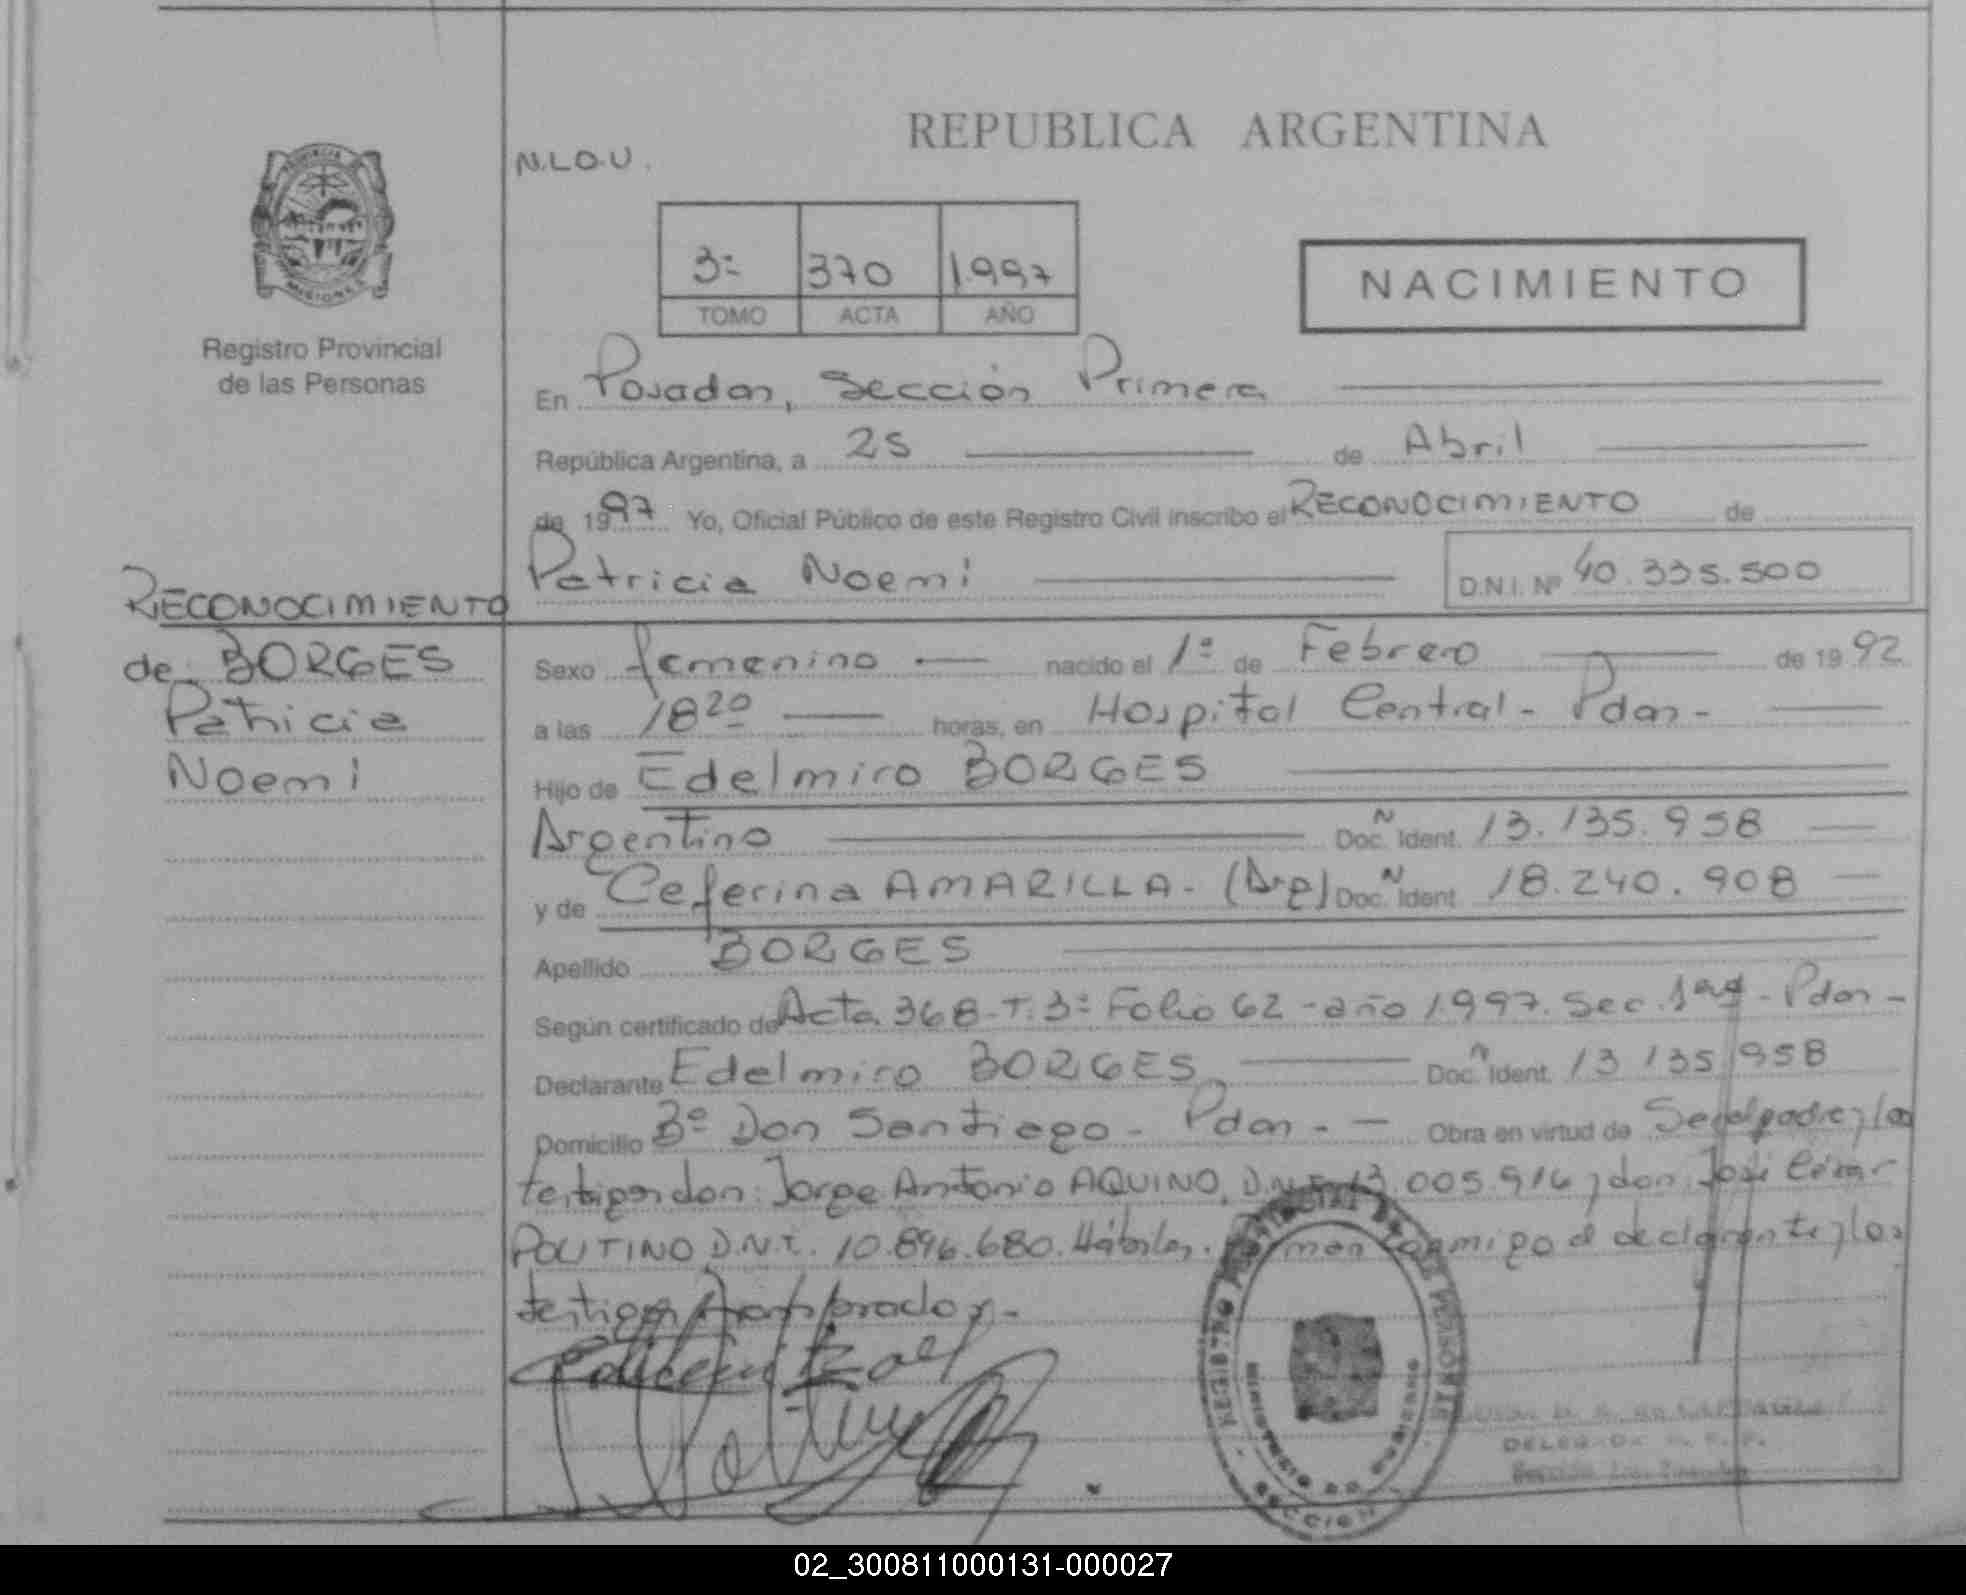 REPUBLICA ARGENTINA
N.L.O.U.
3º 370 1.997
TOMO ACTA AÑO
NACIMIENTO
PROVINCIA
MISIONES
Registro Provincial
de las Personas
En Posadas, Sección Primera
República Argentina, a 25 de Abril
de 1997 Yo, Oficial Público de este Registro Civil inscribo el RECONOCIMIENTO de
Patricia Noemi D.N.I. Nº 40.335.500
RECONOCIMIENTO
de BORGES
Patricia
Noemi
Sexo femenino nacido el 1º de Febrero de 1992
a las 18 20 horas, en Hospital Central - Pdas -
Hijo de Edelmiro BORGES
Argentino Doc. N Ident. 13.135.958
y de Ceferina AMARILLA - (Arg) Doc. N Ident. 18.240.908
Apellido BORGES
Según certificado de Acta 368 - T. 3º Folio 62 - año 1.997. Sec. 1ra - Pdas -
Declarante Edelmiro BORGES Doc. N Ident. 13 135 958
Domicilio Bº Don Santiago - Pdas. - Obra en virtud de Ser el padre y los
testigos don: Jorge Antonio AQUINO, D.N.I. 13.005.916 y don José César
POLITINO D.N.I. 10.896.680. Hábiles. Firman conmigo el declarante y los
testigos nombrados -
REGISTRO PROVINCIAL DE LAS PERSONAS
MINISTERIO DE GOBIERNO
SECCION
DELEGADA R. P. P.
02_300811000131-000027